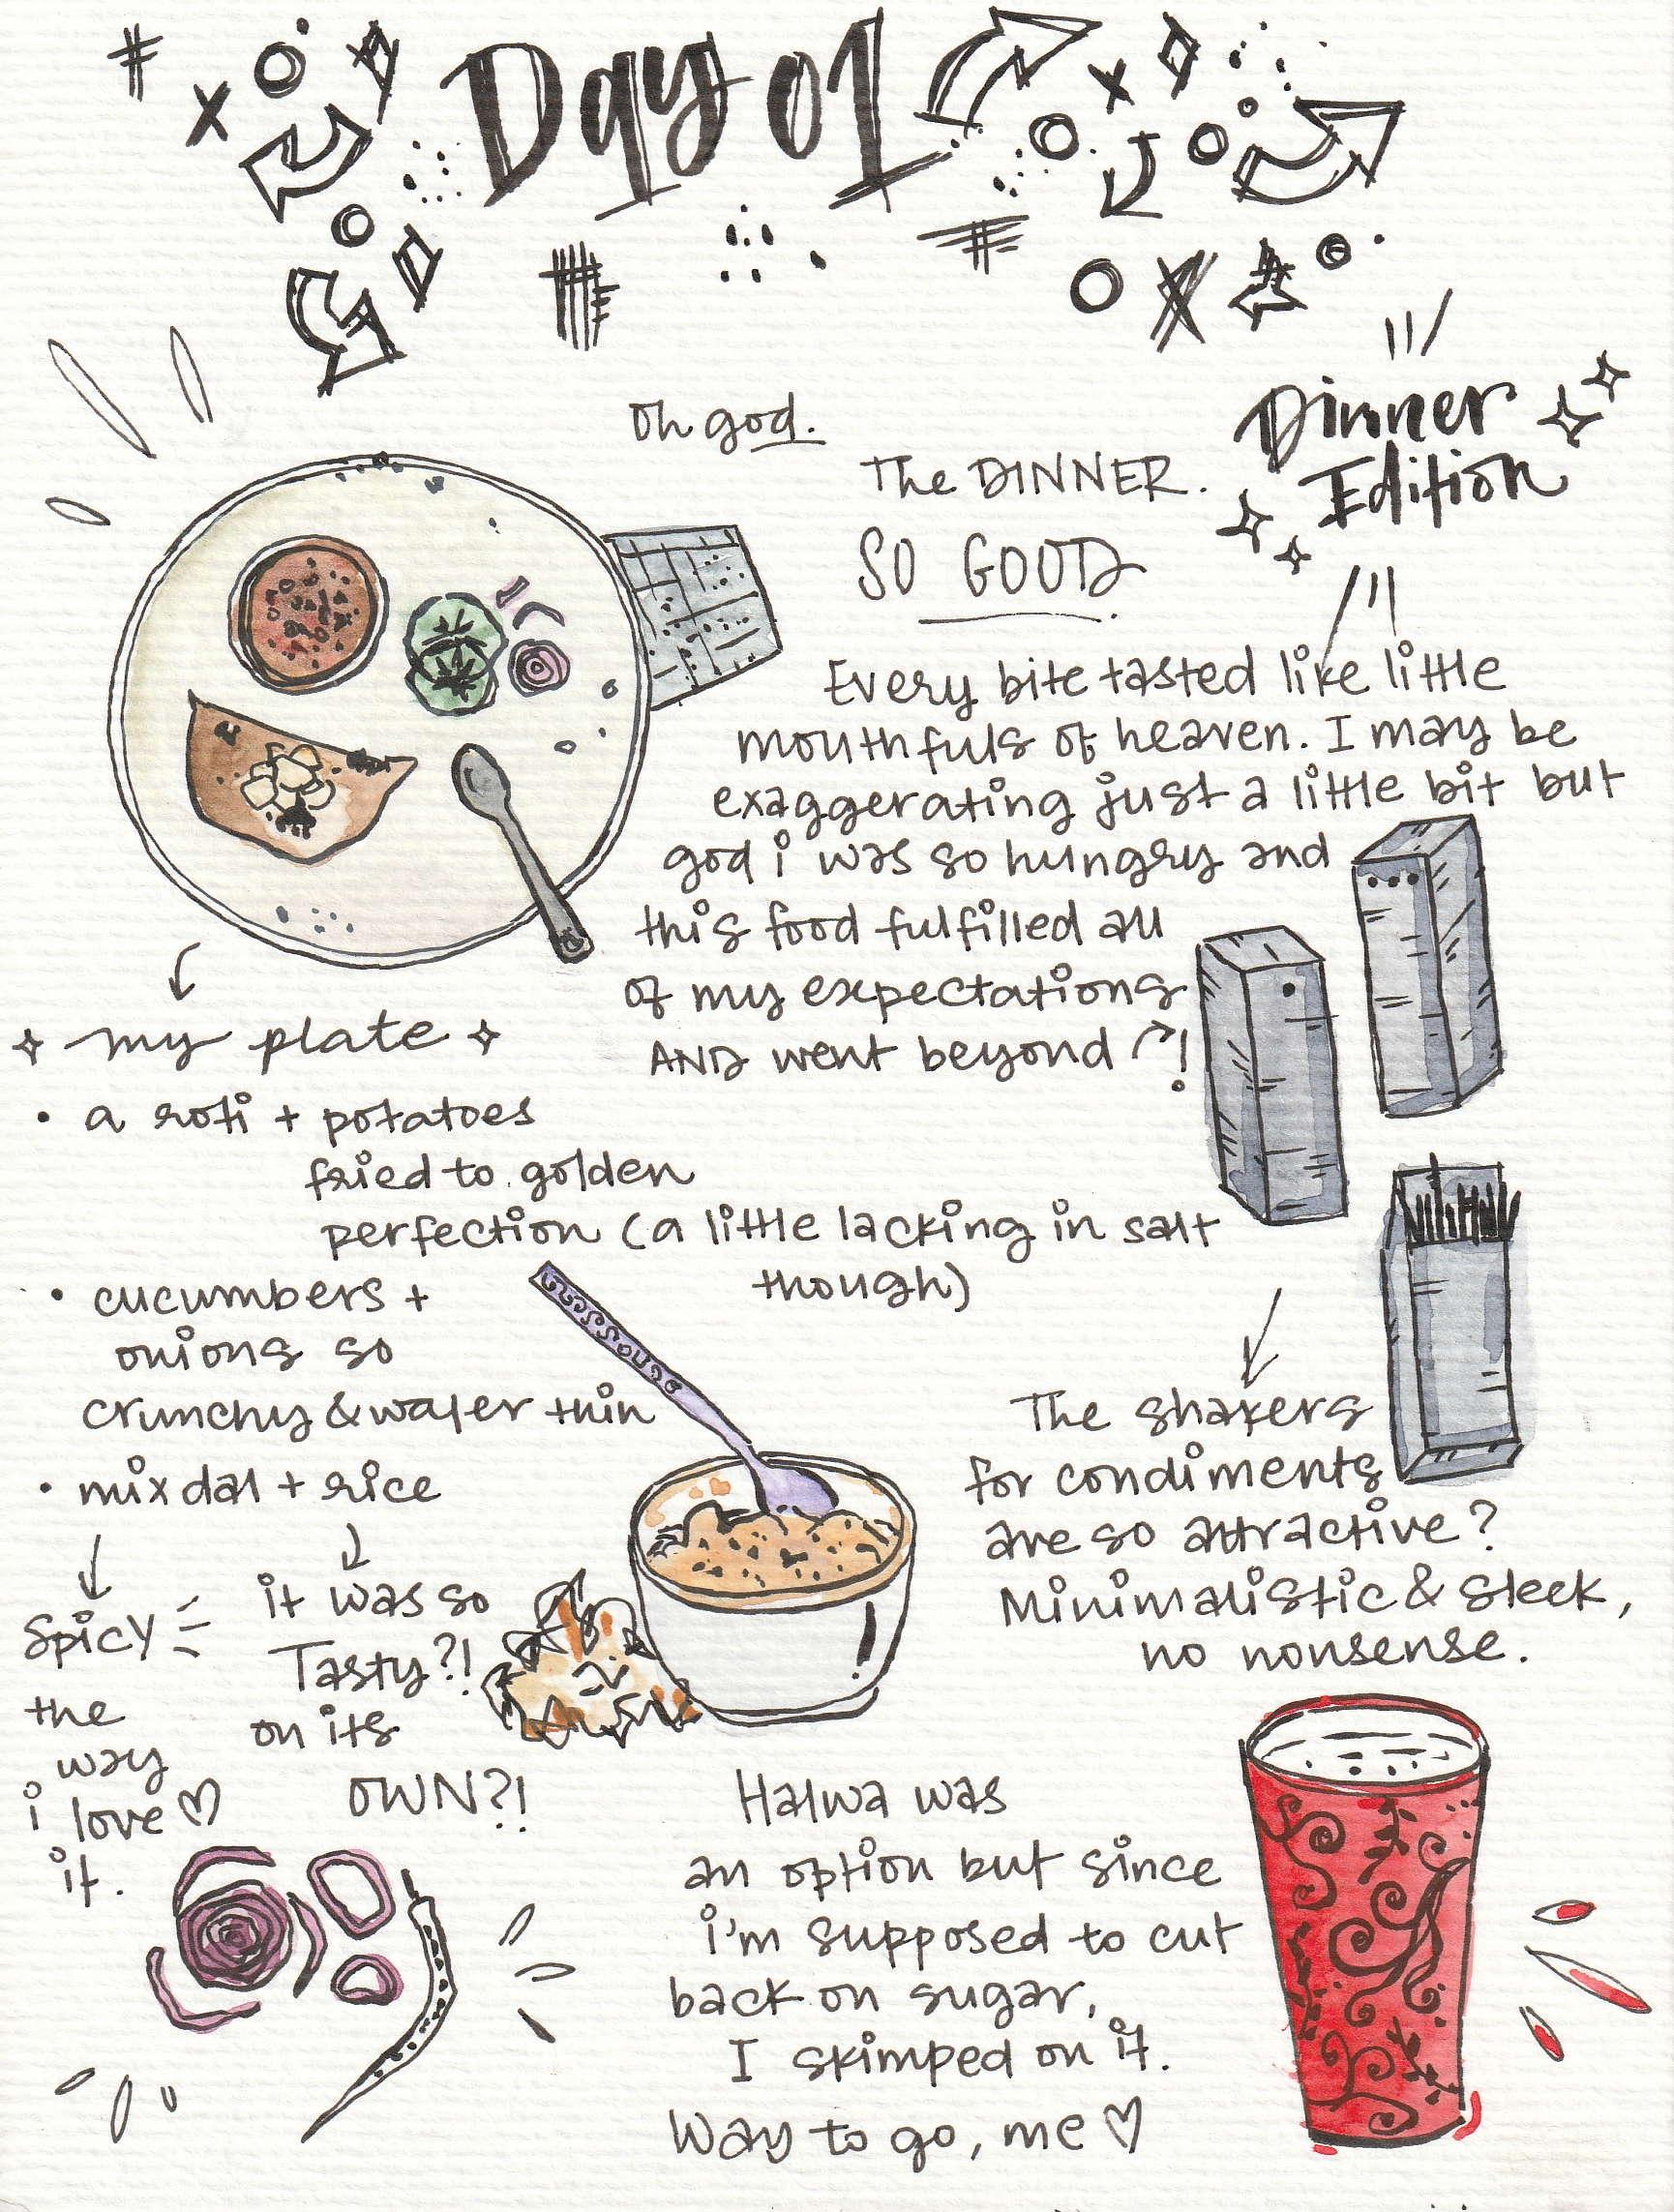 Day 01
Dinner
Edition
oh god.
The DINNER.
SO GOOD
Every bite tasted like little
mouthfuls of heaven. I may be
exaggerating just a little bit but
god i was so hungry and
this food fulfilled all
of my expectations
AND went beyond !
my plate
• a roti + potatoes
fried to golden
perfection (a little lacking in salt
though)
• cucumbers +
onions so
crunchy & wafer thin
• mix dal + rice
Spicy
the
way
i love ♡
it.
it was so
Tasty?!
on its
OWN?!
The shakers
for condiments
are so attractive?
Minimalistic & sleek,
no nonsense.
Halwa was
an option but since
i'm supposed to cut
back on sugar,
I skimped on it.
Way to go, me ♡